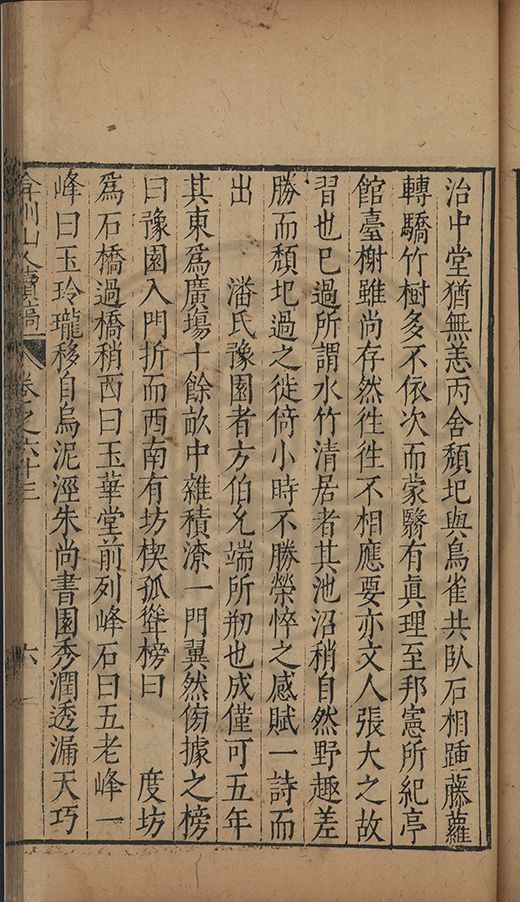 治中堂猶無恙丙舍頹圯與鳥雀共臥石相踵藤蘿
轉驕竹樹多不依次而蒙翳有眞理至邦憲所紀亭
館臺榭雖尚存然徃徃不相應要亦文人張大之故
習也巳過所謂水竹清居者其池沼稍自然野趣差
勝而頹圯過之徙倚小時不勝榮悴之感賦一詩而
出　　潘氏豫園者方伯允端所刱也成僅可五年
其東爲廣場十餘畝中雜積潦一門翼然傍據之榜
曰豫園入門折而西南有坊楔孤聳榜曰　　度坊
爲石橋過橋稍西曰玉華堂前列峰石曰五老峰一
峰曰玉玲瓏移自烏泥涇朱尚書園秀潤透漏天巧
弇州山人續稿　卷之六十三　六